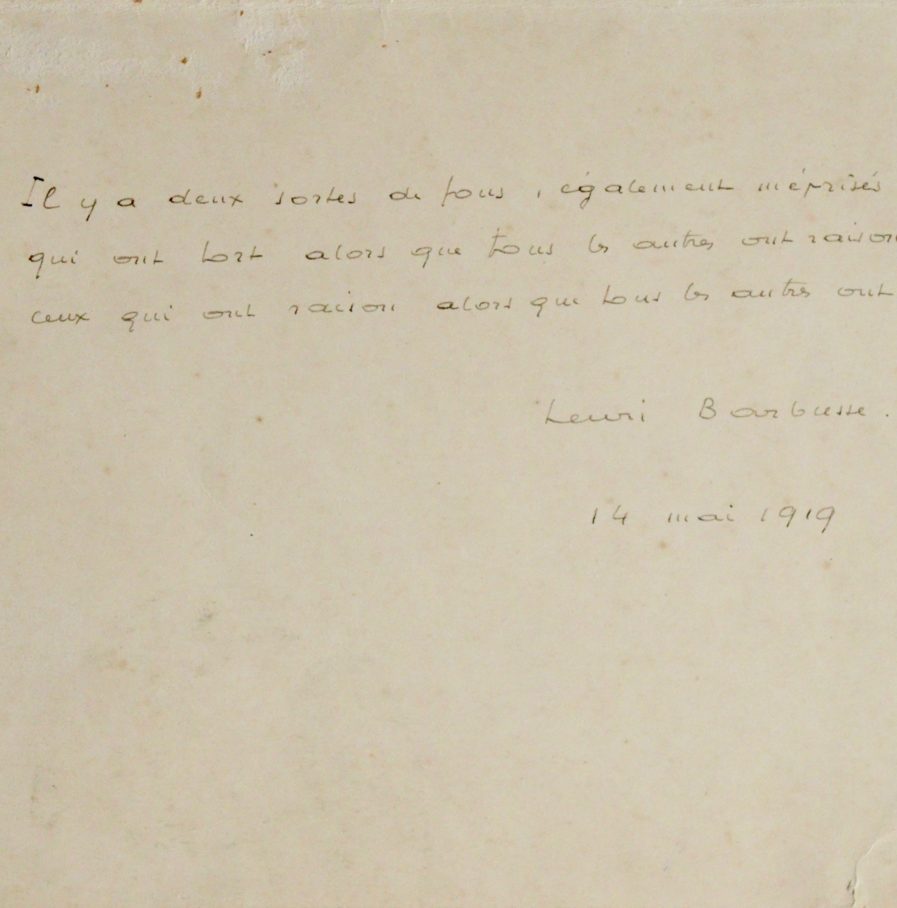 Il y a deux sortes de fous, également méprisés
qui ont tort alors que tous les autres ont raison
ceux qui ont raison alors que tous les autres ont
Henri Barbusse.
14 mai 1919